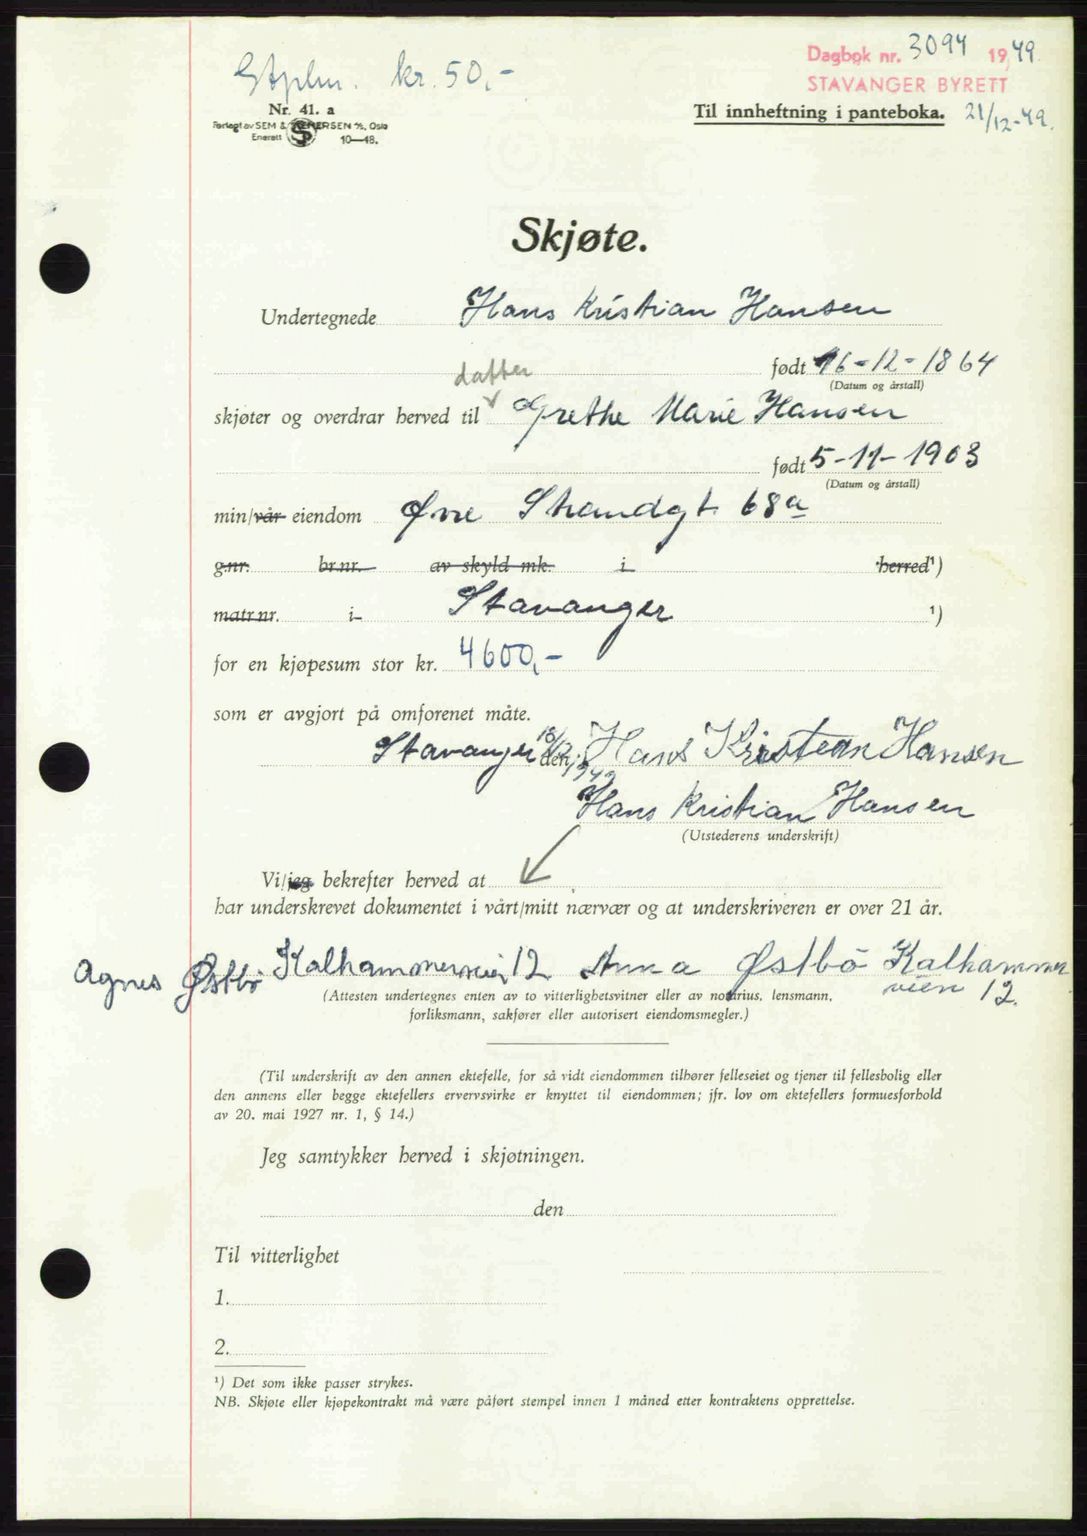 Stplm. kr. 50,-
Dagbok nr. 3094 1949.
STAVANGER BYRETT
Nr. 41. a
Til innheftning i panteboka. 21/12-49.
Forlagt av SEM & STENERSEN A/S, Oslo
Enerett 10—48.
Skjøte.
Undertegnede Hans Kristian Hansen
født 16-12-1864
(Datum og årstall)
datter
skjøter og overdrar herved til Grethe Marie Hansen
født 5-11-1903
(Datum og årstall)
min/vår eiendom Øvre Strandgt 68a
g.nr. br.nr. av skyld mk. i herred¹)
matr.nr. i Stavanger ¹)
for en kjøpesum stor kr. 4600,-
som er avgjort på omforenet måte.
Stavanger den 18/12 1949 Hans Kristian Hansen
Hans Kristian Hansen
(Utstederens underskrift)
Vi/jeg bekrefter herved at
har underskrevet dokumentet i vårt/mitt nærvær og at underskriveren er over 21 år.
Agnes Østbö Kalhammerveien 12 Anna Østbö Kalhammer
veien 12.
(Attesten undertegnes enten av to vitterlighetsvitner eller av notarius, lensmann,
forliksmann, sakfører eller autorisert eiendomsmegler.)
(Til underskrift av den annen ektefelle, for så vidt eiendommen tilhører felleseiet og tjener til fellesbolig eller
den annens eller begge ektefellers ervervsvirke er knyttet til eiendommen; jfr. lov om ektefellers formuesforhold
av 20. mai 1927 nr. 1, § 14.)
Jeg samtykker herved i skjøtningen.
den
Til vitterlighet
1.
2.
¹) Det som ikke passer strykes.
NB. Skjøte eller kjøpekontrakt må være påført stempel innen 1 måned etter kontraktens opprettelse.